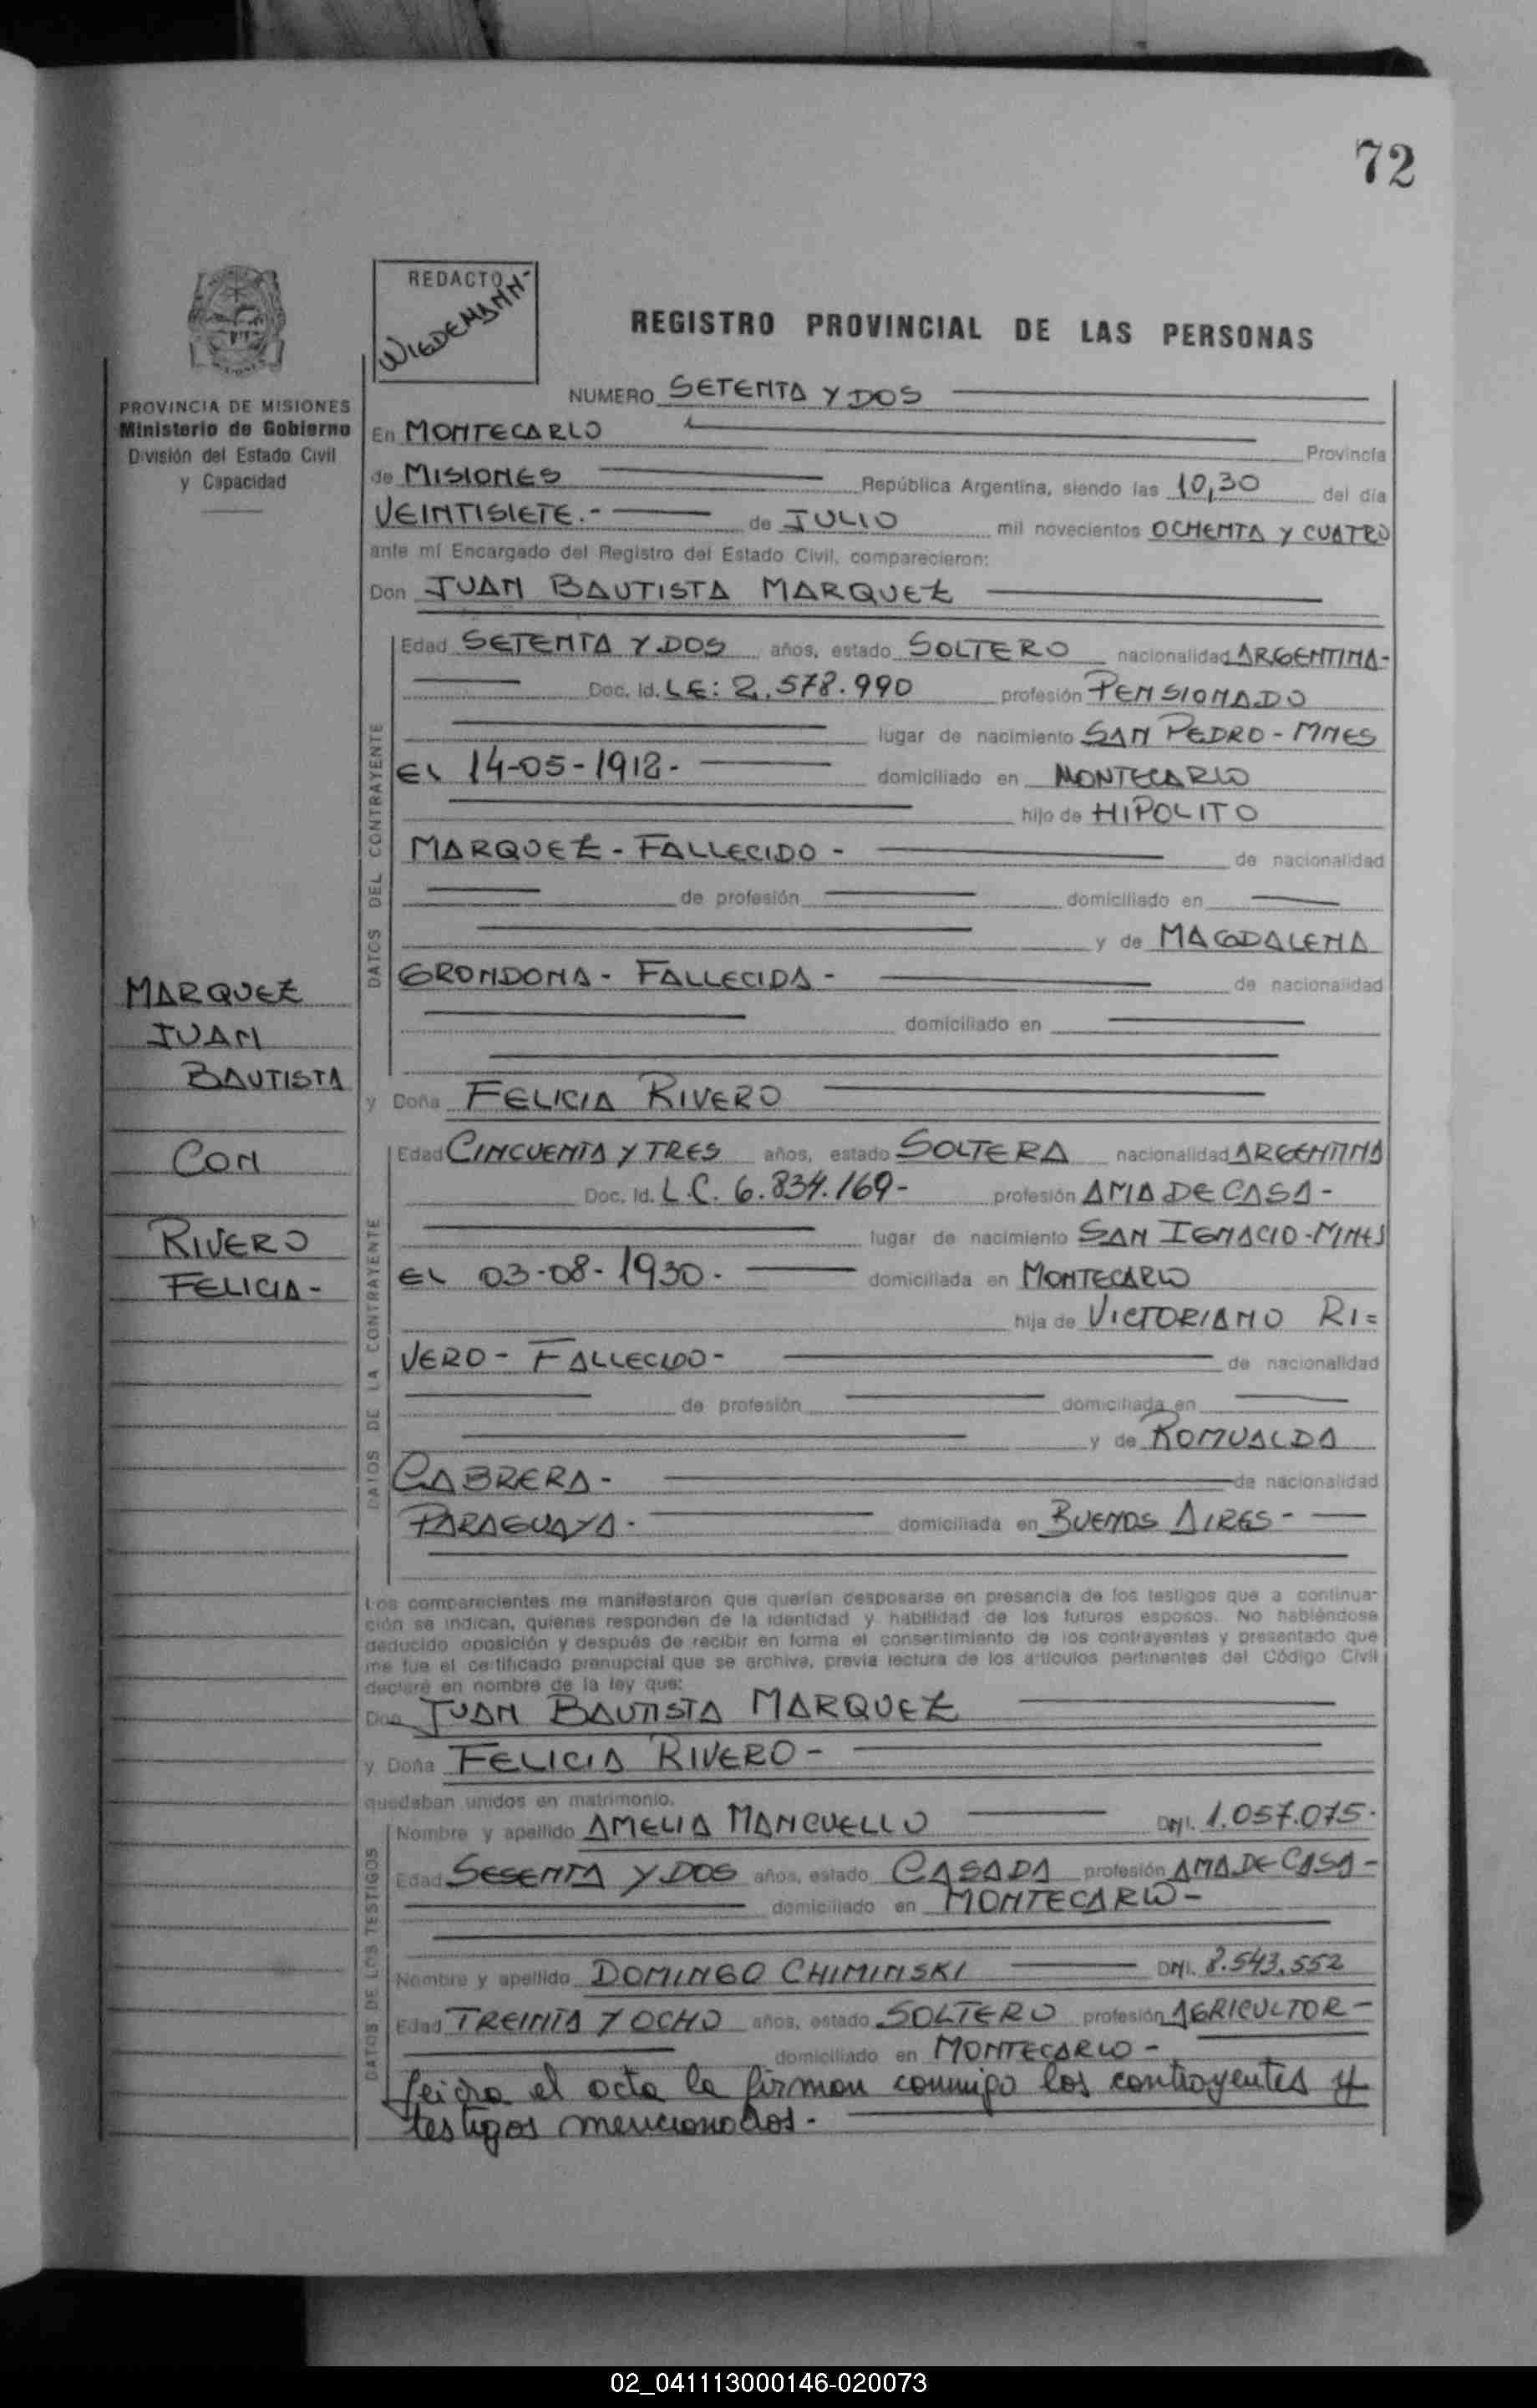 72
REDACTO
WIEDEMANN-
REGISTRO PROVINCIAL DE LAS PERSONAS
PROVINCIA DE MISIONES
Ministerio de Gobierno
División del Estado Civil
y Capacidad
NUMERO SETENTA Y DOS
En MONTECARLO
Provincia
de MISIONES República Argentina, siendo las 10,30 del día
VEINTISIETE.- de JULIO mil novecientos OCHENTA Y CUATRO
ante mí Encargado del Registro del Estado Civil, comparecieron:
Don JUAN BAUTISTA MARQUEZ
DATOS DEL CONTRAYENTE
Edad SETENTA Y DOS años, estado SOLTERO nacionalidad ARGENTINA-
Doc. Id. LE: 2.578.990 profesión PENSIONADO
lugar de nacimiento SAN PEDRO - MNES
EL 14-05-1912- domiciliado en MONTECARLO
hijo de HIPOLITO
MARQUEZ - FALLECIDO - de nacionalidad
de profesión domiciliado en
y de MAGDALENA
GRONDONA - FALLECIDA - de nacionalidad
domiciliado en
MARQUEZ
JUAN
BAUTISTA
CON
RIVERO
FELICIA-
y Doña FELICIA RIVERO
DATOS DE LA CONTRAYENTE
Edad CINCUENTA Y TRES años, estado SOLTERA nacionalidad ARGENTINA
Doc. Id. L.C. 6.834.169- profesión AMA DE CASA-
lugar de nacimiento SAN IGNACIO-MNES
EL 03-08-1930- domiciliada en MONTECARLO
hija de VICTORIANO RI=
VERO - FALLECIDO - de nacionalidad
de profesión domiciliada en
y de ROMUALDA
CABRERA- de nacionalidad
PARAGUAYA- domiciliada en BUENOS AIRES-
Los comparecientes me manifestaron que querían desposarse en presencia de los testigos que a continua-
ción se indican, quienes responden de la identidad y habilidad de los futuros esposos. No habiéndose
deducido oposición y después de recibir en forma el consentimiento de los contrayentes y presentado que
me fue el certificado prenupcial que se archiva, previa lectura de los artículos pertinentes del Código Civil
declaré en nombre de la ley que:
Don JUAN BAUTISTA MARQUEZ
y Doña FELICIA RIVERO-
quedaban unidos en matrimonio.
DATOS DE LOS TESTIGOS
Nombre y apellido AMELIA MANCUELLO DNI. 1.057.075-
Edad SESENTA Y DOS años, estado CASADA profesión AMA DE CASA-
domiciliado en MONTECARLO-
Nombre y apellido DOMINGO CHIMINSKI DNI. 8.543.552
Edad TREINTA Y OCHO años, estado SOLTERO profesión AGRICULTOR-
domiciliado en MONTECARLO-
Leida el acta la firman conmigo los contrayentes y
testigos mencionados-
02_041113000146-020073